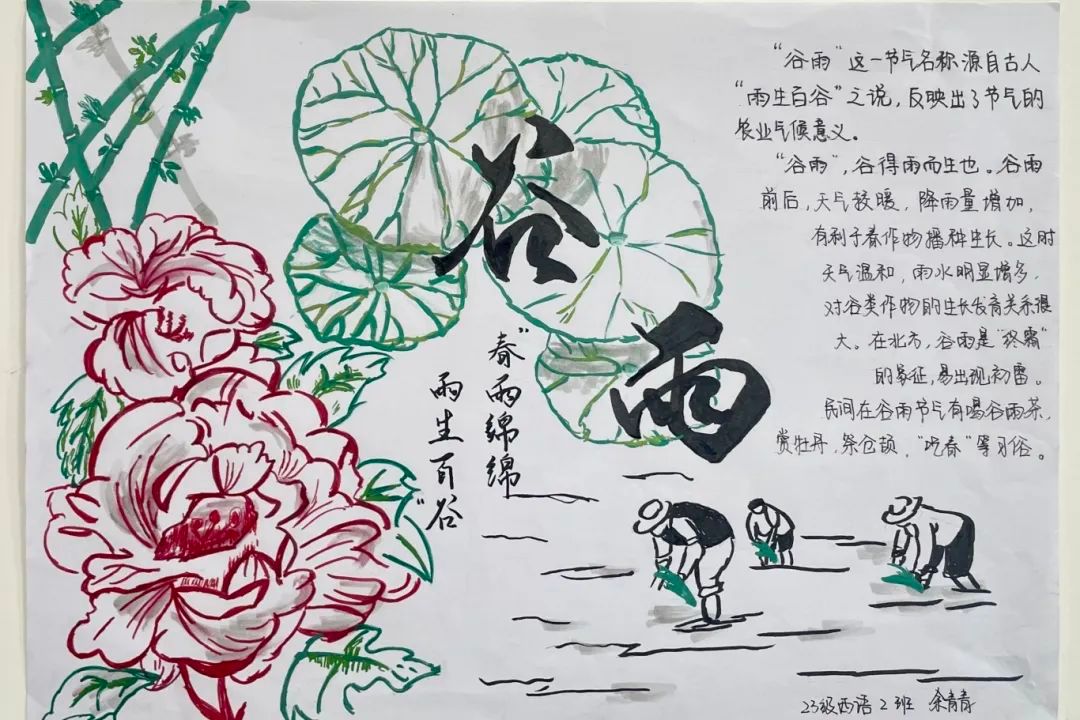 谷雨
“春雨绵绵
雨生百谷”
“谷雨”这一节气名称源自古人
“雨生百谷”之说，反映出了节气的
农业气候意义。
“谷雨”，谷得雨而生也。谷雨
前后，天气较暖，降雨量增加，
有利于春作物播种生长。这时
天气温和，雨水明显增多，
对谷类作物的生长发育关系很
大。在北方，谷雨是“终霜”
的象征，易出现初雷。
民间在谷雨节气有喝谷雨茶，
赏牡丹，祭仓颉，“吃春”等习俗。
23级西语2班 余青青